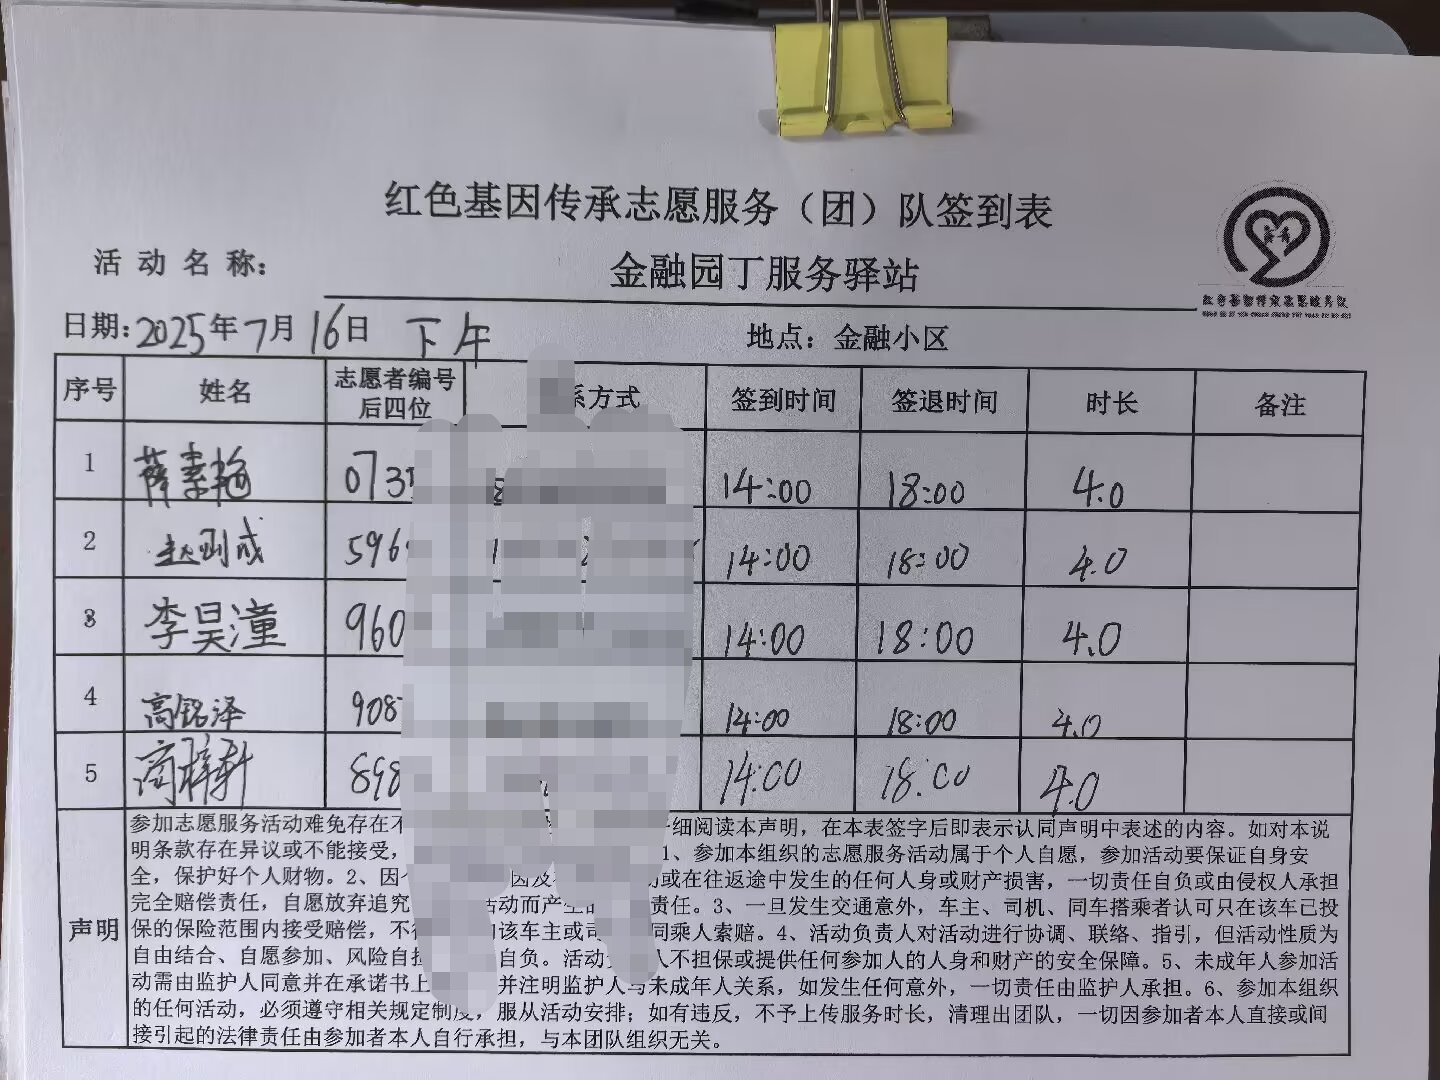 红色基因传承志愿服务（团）队签到表
活动名称： 金融园丁服务驿站
日期：2025年7月16日 下午 地点：金融小区
序号 姓名 志愿者编号后四位 系方式 签到时间 签退时间 时长 备注
1 薛素梅 073 14:00 18:00 4.0
2 赵刚成 596 14:00 18:00 4.0
3 李昊潼 960 14:00 18:00 4.0
4 高铭泽 908 14:00 18:00 4.0
5 高梓轩 898 14:00 18:00 4.0
声明
参加志愿服务活动难免存在不 细阅读本声明，在本表签字后即表示认同声明中表述的内容。如对本说
明条款存在异议或不能接受， 1、参加本组织的志愿服务活动属于个人自愿，参加活动要保证自身安
全，保护好个人财物。2、因 因及 或在往返途中发生的任何人身或财产损害，一切责任自负或由侵权人承担
完全赔偿责任，自愿放弃追究 活动而产生的 责任。3、一旦发生交通意外，车主、司机、同车搭乘者认可只在该车已投
保的保险范围内接受赔偿，不 该车主或司 同乘人索赔。4、活动负责人对活动进行协调、联络、指引，但活动性质为
自由结合、自愿参加、风险自 自负。活动 人不担保或提供任何参加人的人身和财产的安全保障。5、未成年人参加活
动需由监护人同意并在承诺书上 并注明监护人与未成年人关系，如发生任何意外，一切责任由监护人承担。6、参加本组织
的任何活动，必须遵守相关规定制度，服从活动安排；如有违反，不予上传服务时长，清理出团队，一切因参加者本人直接或间
接引起的法律责任由参加者本人自行承担，与本团队组织无关。